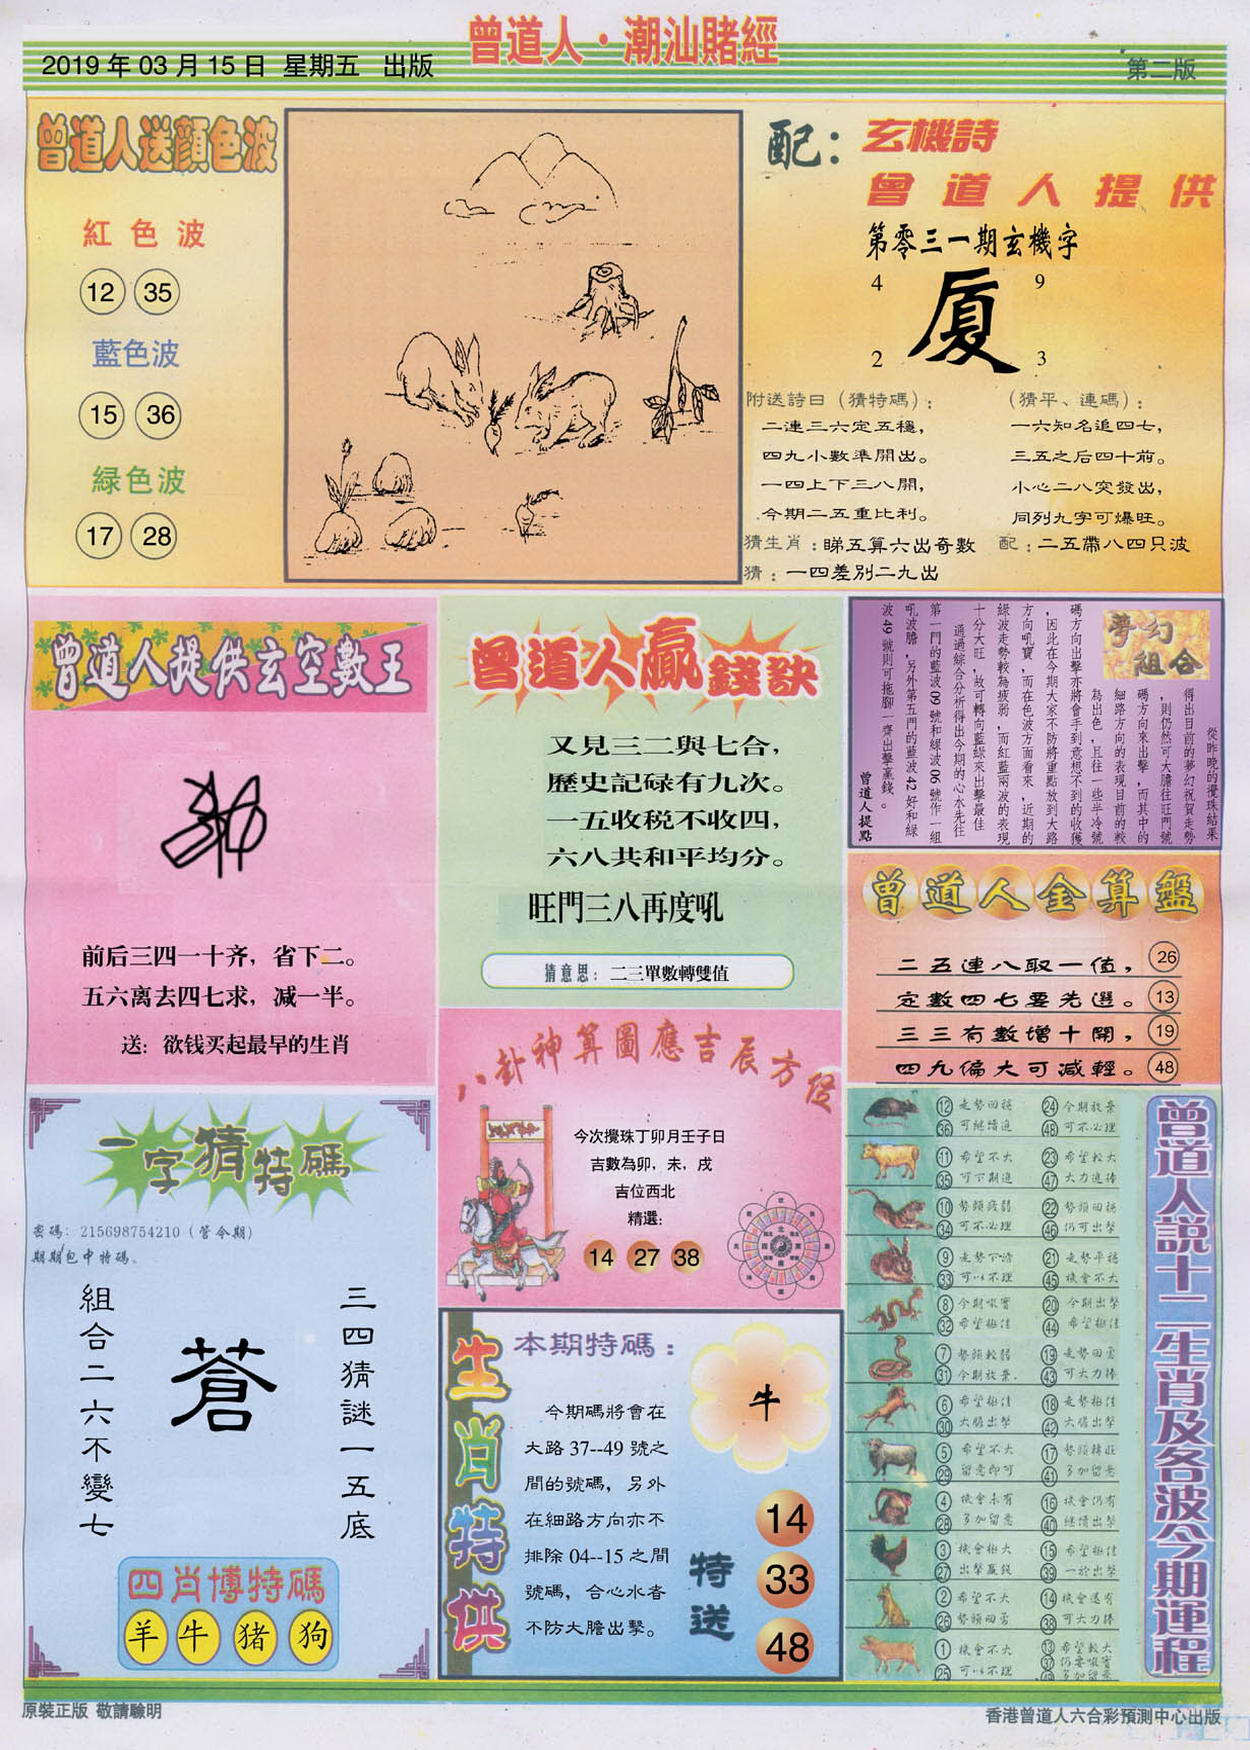 曾道人·潮汕賭經
2019年03月15日 星期五 出版
第二版
曾道人送顔色波
紅色波
12 35
藍色波
15 36
緑色波
17 28
配：玄機詩
曾道人提供
第零三一期玄機字
4 9
廈
2 3
附送詩曰（猜特碼）：
二連三六定五穩，
四九小數準開出。
一四上下三八開，
今期二五重比利。
（猜平、連碼）：
一六知名追四七，
三五之后四十前。
小心二八突發出，
同列九字可爆旺。
猜生肖：睇五算六出奇數
配：二五帶八四只波
猜：一四差別二九出
曾道人提供玄空數王
前后三四一十齐，省下二。
五六离去四七求，减一半。
送：欲钱买起最早的生肖
曾道人贏錢訣
又見三二與七合，
歷史記碌有九次。
一五收税不收四，
六八共和平均分。
旺門三八再度吼
猜意思：二三單數轉雙值
夢幻組合
從昨晚的攪珠結果
得出目前的夢幻祝賀走勢
，則仍然可大膽往旺門號
碼方向來出擊，而其中的
細路方向的表現目前的較
為出色，且往一些半冷號
碼方向出擊亦將會手到意想不到的收獲
，因此在今期大家不防將重點放到大路
方向吼寶，而在色波方面看來，近期的
綠波走勢較為疲弱，而紅藍兩波的表現
十分大旺，故可轉向藍綠來出擊最佳
通過綜合分析得出今期的心水先往
第一門的藍波09號和綠波06號作一組
吼波膽，另外第五門的藍波42好和綠
波49號則可拖腳一齊出擊贏錢。
曾道人提點
曾道人金算盤
二五連八取一值，26
定數四七要先選。13
三三有數增十開，19
四九偏大可減輕。48
八卦神算圖應吉辰方位
今次攪珠丁卯月壬子日
吉數為卯，未，戌
吉位西北
精選：
14 27 38
一字猜特碼
密碼：215698754210（管令期）
期期包中特碼。
三四猜謎一五底
蒼
組合二六不變七
四肖博特碼
羊 牛 猪 狗
生肖特供
本期特碼：
牛
今期碼將會在
大路37--49號之
間的號碼，另外
在細路方向亦不
排除04--15之間
號碼，合心水者
不防大膽出擊。
特送
14
33
48
曾道人説十二生肖及各波今期運程
12 走勢回穩 24 今期放棄
36 可繼續追 48 可不必理
11 希望不大 23 希望較大
35 可下期追 47 大力追捧
10 勢頭疲弱 22 勢頭回穩
34 可不必理 46 仍可出擊
9 走勢下滑 21 走勢平穩
33 可以不理 45 機會不大
8 今期吸寶 20 今期出擊
32 希望極佳 44 希望極佳
7 勢頭較弱 19 走勢回勇
31 今期放棄. 43 可大力捧
6 希望極佳 18 走勢極佳
30 大膽出擊 42 大膽出擊
5 希望不大 17 勢頭轉旺
29 留意即可 41 多加留意
4 機會未有 16 機會仍有
28 多加留意 40 繼續出擊
3 機會極大 15 希望極佳
27 出擊贏錢 39 一於出擊
2 希望不大 14 機會還有
26 勢頭回勇 38 可大力捧
1 機會不大 13 希望較大
25 可以不理 37 仍要吸寶
49 多加留意
原裝正版 敬請驗明
香港曾道人六合彩預測中心出版